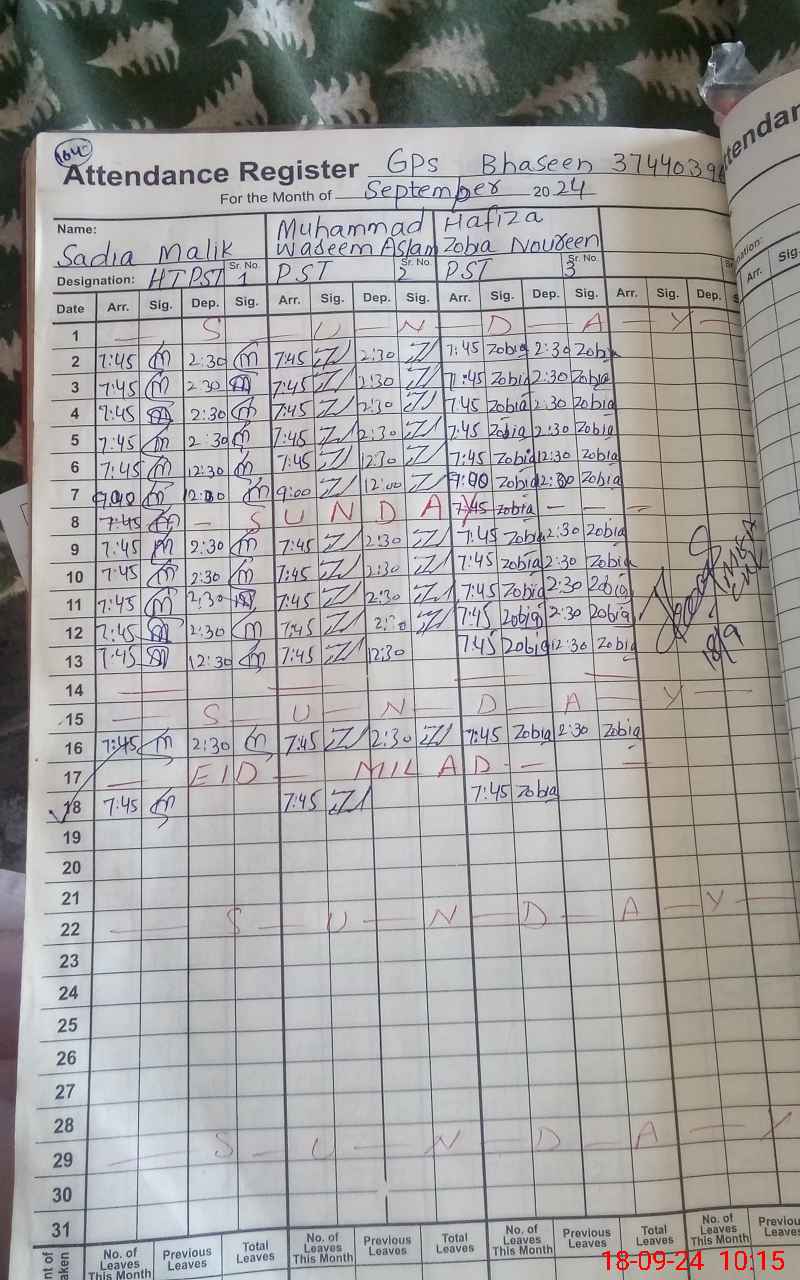 164
Attendance Register GPs Bhaseen 3744039
For the Month of September 2024
Name: Sadia Malik Muhammad Waseem Aslam Hafiza Zobia Noureen
Designation: HT PST Sr. No. 1 PST Sr. No. 2 PST Sr. No. 3
Date Arr. Sig. Dep. Sig. Arr. Sig. Dep. Sig. Arr. Sig. Dep. Sig. Arr. Sig. Dep.
1 — S — U — N — D — A — Y —
2 7:45 2:30 7:45 2:30 7:45 Zobia 2:30 Zobia
3 7:45 2:30 7:45 2:30 7:45 Zobia 2:30 Zobia
4 7:45 2:30 7:45 2:30 7:45 Zobia 2:30 Zobia
5 7:45 2:30 7:45 2:30 7:45 Zobia 2:30 Zobia
6 7:45 12:30 7:45 12:30 7:45 Zobia 12:30 Zobia
7 9:00 12:00 9:00 12:00 9:00 Zobia 12:00 Zobia
8 7:45 — S U N D A Y 7:45 Zobia — — —
9 7:45 2:30 7:45 2:30 7:45 Zobia 2:30 Zobia
10 7:45 2:30 7:45 2:30 7:45 Zobia 2:30 Zobia
11 7:45 2:30 7:45 2:30 7:45 Zobia 2:30 Zobia
12 7:45 2:30 7:45 2:30 7:45 Zobia 2:30 Zobia
13 7:45 12:30 7:45 12:30 7:45 Zobia 12:30 Zobia
18/9
14
15 — S — U — N — D — A — Y —
16 7:45 2:30 7:45 2:30 7:45 Zobia 2:30 Zobia
17 — EID — MILAD — —
18 7:45 7:45 7:45 Zobia
19
20
21
22 — S — U — N — D — A — Y —
23
24
25
26
27
28
29 — S — U — N — D — A — Y
30
31
No. of Leaves This Month Previous Leaves Total Leaves No. of Leaves This Month Previous Leaves Total Leaves No. of Leaves This Month Previous Leaves Total Leaves No. of Leaves This Month Previous Leaves
18-09-24 10:15